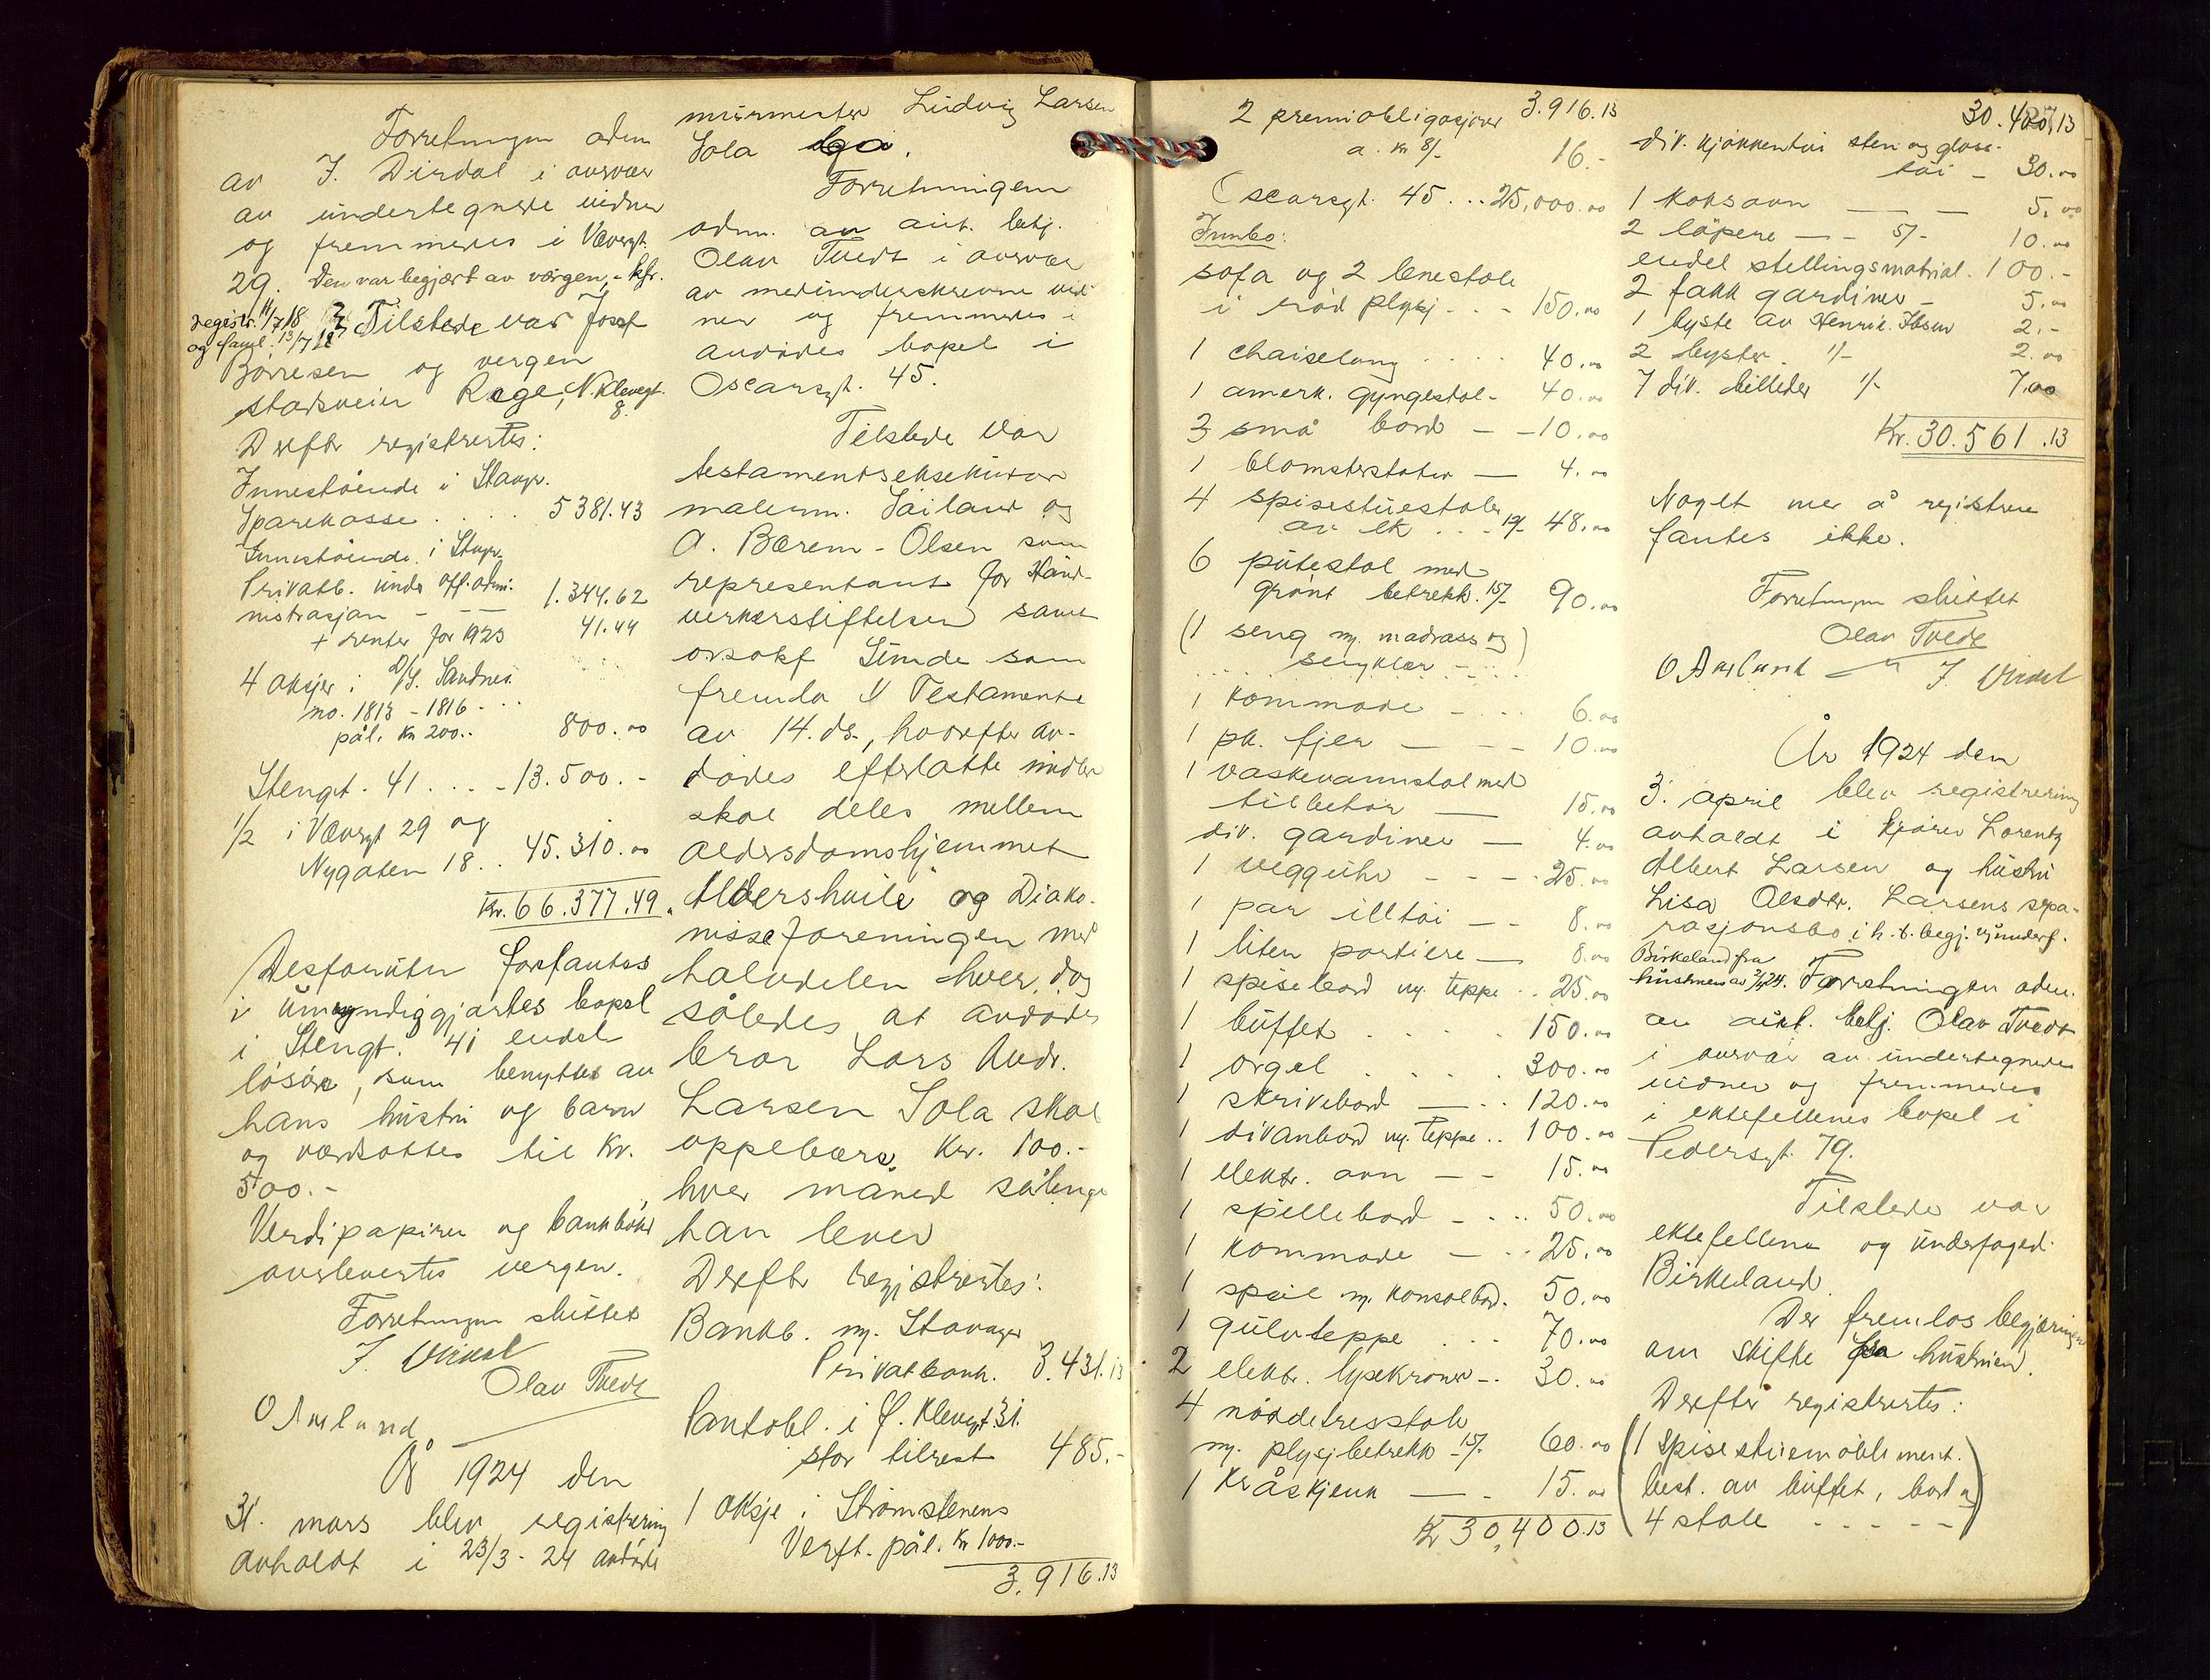 Forretningen adm.
av J. Dirdal i overvær
av undertegnede vidner
og fremmedes i Vævergt.
29. Den var begjært av vergen, - kfr.
registr. 11/7 18
og saml. 13/7 18 Tilstede var Josef
Børresen og vergen
stadsveier Rege, N. Klevegt.
8.
Derefter registrertes:
Innestående i Stavgr.
Sparekasse . . . . 5381.43
Innestående i Stvgr.
Privatb. under off. admi-
nistrasjon - - - 1.344.62
+ renter for 1923 41.44
4 aksjer i D/S. Sandnes
no. 1813 - 1816 - . .
pål. Kr 200.. 800.00
Stengt. 41 . . . - 13.500.-
1/2 i Vævergt 29 og
Nygaten 18 . . 45.310.00
Kr. 66.377.49.
Desforuten forfantes
i umyndiggjortes bopel
i Stengt. 41 endel
løsøre, som benyttes av
hans hustru og barn
og værdsattes til Kr.
500.-
Verdipapirer og bankbøker
avlevertes vergen.
Forretningen sluttet
J. Dirdal
Olav Tvedt
O Aaslund
År 1924 den
31. mars blev registrering
avholdt i 23/3 - 24 avdøde
murmester Ludvig Larsen
Sola bo.
Forretningen
adm. av aut. betj.
Olav Tvedt i overvær
av medunderskrevne vid-
ner og fremmedes i
avdødes bopel i
Oscarsgt. 45.
Tilstede var
testamentseksekutor
malerm. Sailand og
A. Bærem - Olsen som
representant for Hånd-
verkerstiftelsen samt
o.r.sakf Sunde som
fremla 1 Testamente
av 14. ds., hvorefter av-
dødes efterlatte midler
skal deles mellem
aldersdomshjemmet
Aldershvile og Diako-
nisseforeningen med
halvdelen hver, dog
således at avdødes
bror Lars Andr.
Larsen Sola skal
oppebære Kr. 100.-
hver måned sålenge
han lever
Derefter registrertes:
Bankb. m. Stavanger
Privatbank. 3.431.13
Pantobl. i Ø. Klevegt 31.
stor tilrest 485.-
1 aksje i Strømstenens
Verft. pål. Kr 1000.-
3.916.13
3.916.13
2 premiobligasjoner
a. kr 8/- 16.-
Oscarsgt. 45 . . . 25,000.00
Innbo:
sofa og 2 lenestole
i rød plysj . . - 150.00
1 chaiselong . . . . 40.00
1 amerk. gyngestol - 40.00
3 små bord - - 10.00
1 blomsterstativ — 4.00
4 spisestuestoler
av ek . . . 12/- 48.00
6 putestol med
grønt betrekk. 15/- 90.00
(1 seng m. madrass og
sengklær - . . )
1 kommode - . . . 6.00
1 pk. fjer — — - 10.00
1 vaskevannstol med
tilbehør — 15.00
div. gardiner — 4.00
1 veggühr - - - . 25.00
1 par illtøi — - 8.00
1 liten portiere — 8.00
1 spisebord m. teppe . . 25.00
1 buffet . . . . . 150.00
1 orgel . . . . . 300.00
1 skrivebord — . . 120.00
1 divanbord m. teppe . . 100.00
1 elektr. ovn - - 15.00
1 spillebord - . . . 50.00
1 kommode — . . 25.00
1 speil m. konsolbord. 50.00
1 gulvteppe . . . 70.00
2 elektr. lysekroner - . 30.00
4 nøddetresstole
m. plysjbetrekk - 15/- 60.00
1 kråskjenk — - 15.00
Kr 30,400.13
30.400,13
div. kjøkkentøi sten og glass-
tøi - 30.00
1 koksovn — — 5.00
2 løpere — - 5/- 10.00
endel stellingsmatrial. 100.-
2 fakk gardiner - 5.00
1 byste av Henrik Ibsen 2.-
2 byster . 1/- 2.00
7 div. billeder 1/- 7.00
Kr. 30.561.13
Noget mer å registrere
fantes ikke.
Forretningen sluttet
Olav Tvedt
O Aaslund J. Dirdal
År 1924 den
3. april blev registrering
avholdt i kjører Lorentz
Albert Larsen og hustru
Lisa Olsdtr. Larsens sepa-
rasjonsbo i h.t. begj. v/ underf.
Birkeland fra
hustruen av 2/4 24. Forretningen adm.
av aut. betj. Olav Tvedt
i overvær av undertegnede
vidner og fremmedes
i ektefellenes bopel i
Pedersgt. 79.
Tilstede var
ektefellene og underfoged
Birkeland.
Der fremlas begjæringen
om skifte fra hustruen.
Derefter registrertes:
(1 spisestuemøblement.
best. av buffet, bord og
4 stole - - - - -)